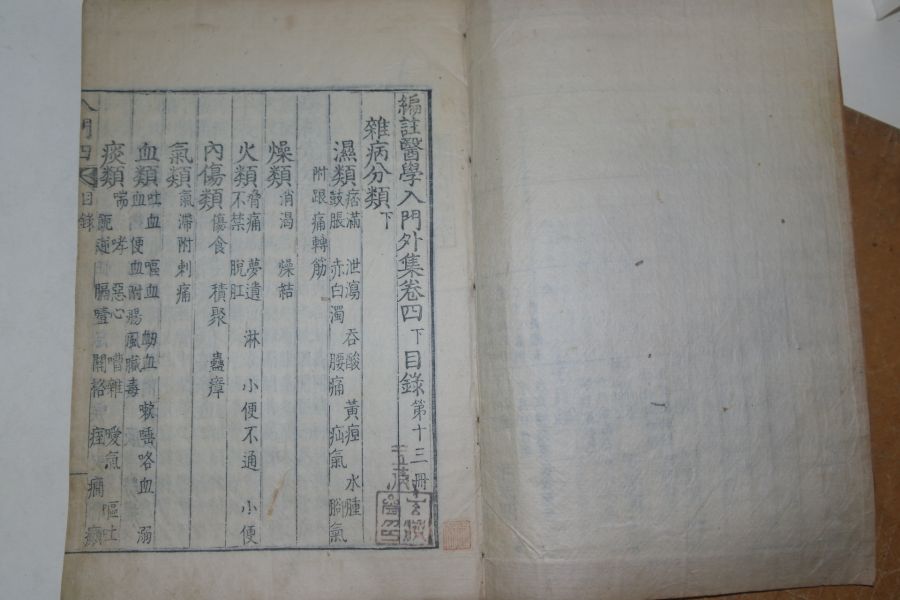 編註醫學入門外集卷四下目錄第十三冊
雜病分類下
濕類 痞滿 泄瀉 吞酸 黃疸 水腫
鼓脹 赤白濁 腰痛 疝氣 脚氣
附跟痛轉筋
燥類 消渴 燥結
火類 脅痛 夢遺 淋 小便不通 小便
不禁 脫肛
內傷類 傷食 積聚 蟲瘴
氣類 氣滯附刺痛
血類 吐血 嘔血 衂血 咳唾咯血 溺
血 便血附腸風臟毒
痰類 喘 哮 惡心 嘈雜 噯氣 嘔吐
膈噎 關格 痓 癎 癲
入門四 目錄